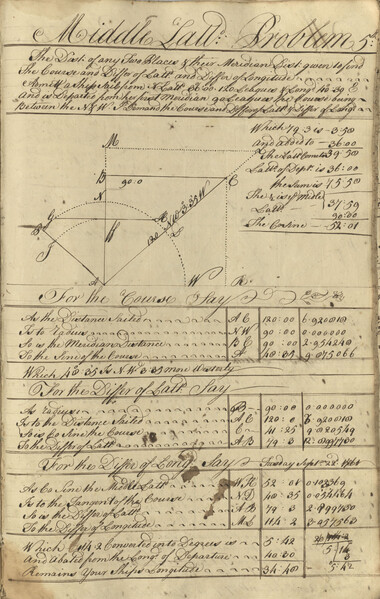 Middle Latt. Problem 5th
The Dist. of any two Places & their Meridian Dist. given to find
The Course and Differ of Latt. and Differ of Longitude
Admit a Ship Sails from Latt. 36:00 120 Leagues & Long. 40:30 E
And is Departed from her first Meridian 90 Leagues the Course being
Between the N & W I Demand the Course and Differ of Latt. & Differ of Long.
Which 79.3 is 3:58
and added to 36:00
The Latt Come to 39:58
Latt. of Dept. is 36:00
the Sum is 75:58
The ½ is ye Middle Latt. 37:59
90:00
The Cosine 52:01
M
B 90:0 C
N
W
W R
120
40:35 W
For the Course Say
As the Distance Sailed A C 120:00
Is to radius N W 90:00 0.000000
So is the Meridian Distance B C 90:00 2.954240
To the Sine of the Course A 48:35 9.875066
Which 48:35 is N W 3:35 more Westerly
For the Differ of Latt. Say
As radius B 90:00 0.000000
Is to the Distance Sailed A C 120:0
So is Co Sine the Course C 41:25 9.820549
To the Differ of Latt. A B 79:3
For the Differ of Long. Say
Tuesday Sept. 22d
As Co Sine the Middle Latt. 52:01
Is to the Tangent of the Course 48:35
So is the Differ of Latt. A B 79:3
To the Differ of Longitude 114:2
Which 114.2 Converted into Degrees is 5:42
And Abated from the Long. of Departure 40:30
Remains Your Ships Longitude 34:48
5:42